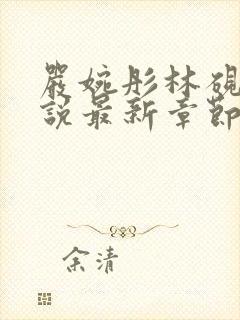 嚴婉彤林硯
說最新章節
余清